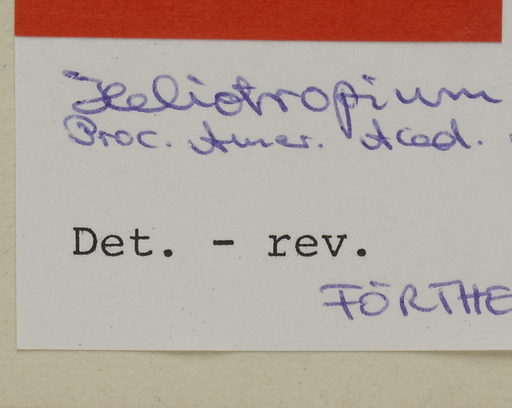 Heliotropium
Proc. Amer. Acad.
Det. - rev.
FÖRTHE